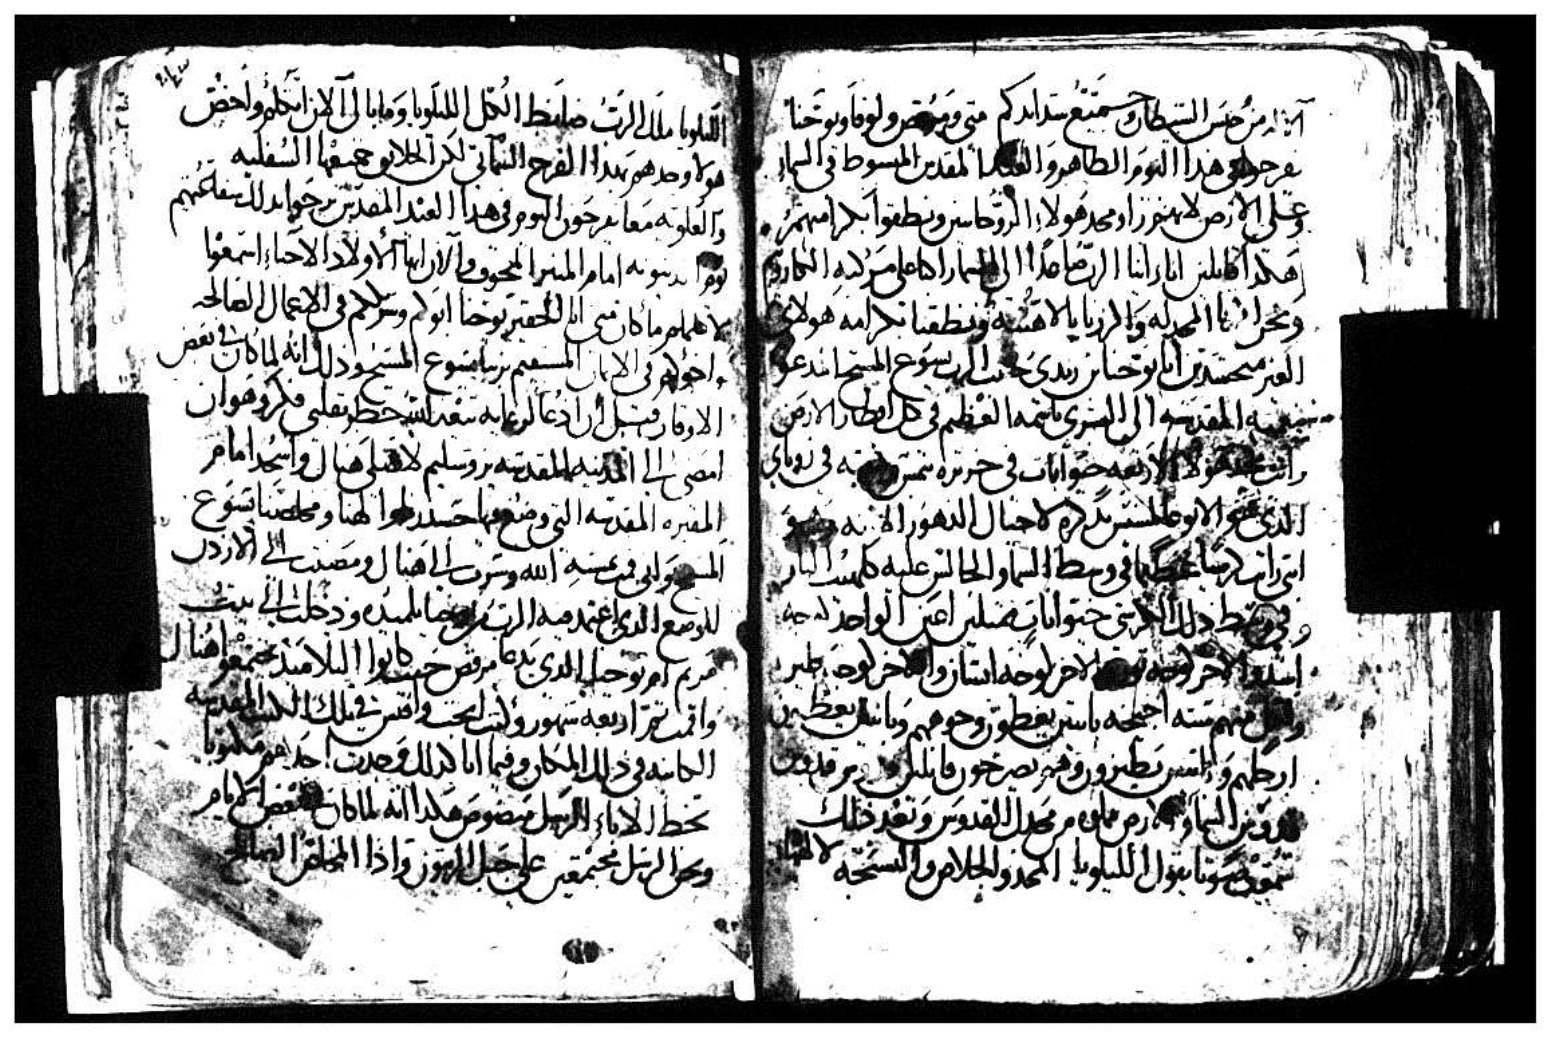 من حبس الشيطان جميع شدايدكم متى ومرقص ولوقا ويوحنا
يفرحوا في هذا اليوم الطاهر والعيد المقدس المبسوط في السماء
وعلى الارض لا يهنوا ومجد هولاء الروحانيين ونطقوا بكرامتهم
هكذا قايلين اننا راينا الرب صاعدا الى السما راكبا على مركبه الشاروبيم
ونحن المحمديه ولا هيته ونطقنا بكرامه هولاي
الغير متجسدين انا يوحنا بن زبدي حبيب الرب يسوع المسيح اندعوا
المقدسه الى البشرى باسمه العظيم في كل اقطار الارض
رايت هولا الاربعه حيوانات في جزيره تسمى في روياي
الذي الابوغالمسيس تذكره لاجيال الدهور الاتيه وهو
انني رايت كرسيا عظيما في وسط السما والجالس عليه كلهيب النار
وفي وسط ذلك الكرسي حيوانات ممتليين اعين الواحد له وجه
اسد والاخر لوجه ثور الاخر لوجه انسان والاخر لوجه طير
ولكل منهم سته اجنحه باثنين يغطون وجوههم وباثنين يغطين
ارجلهم وباثنين يطيرون وهم يصرخون قايلين قدوس
قدوس السما والارض مملوه من مجدك القدوس وبعد ذلك
سمعت صوتا يقول الليلويا المجد والخلاص والتسبحه لالهنا
الليلويا ملك الرب ضابط الكل الليلويا وما بالى الان اتكلم واخص
هولا وحدهم بهذا الفرح السماني لكن الخلايق جميعها السفليه
والعلويه معا يفرحون اليوم في هذا العيد المقدس يرجوا بذلك شفاعتهم
يوم الدينونه امام المنبر المخوف والان ايها الاولاد الاحباء اسمعوا
لاهمام ما كان مني انا الحقير يوحنا ابوكم وشريككم في الاعمال الصالحه
واخوكم في الايمان المستقيم بربنا يسوع المسيح وذلك انه لما كان في بعض
الاوقات قبل ان ادعا لرعايه شعب المسيح خطر بقلبي فكر وهو ان
امضي الى المدينه المقدسه يروشليم لاصلي هناك واسجد امام
المقبره المقدسه التي وضع فيها جسد الهنا ومخلصنا يسوع
المسيح واني قمت بمشيه الله وسرت الى هناك ومضيت الى الاردن
للموضع الذي اعتمد فيه الرب من يوحنا تلميذه ودخلت الى بيت
مريم ام يوحنا الذي يدعا مرقص حيث كانوا التلاميذ مجتمعوا هناك
واقمت ثم اربعه شهور وكنت ابحث وافتش في تلك الكتب المقدسه
الكاينه في ذلك المكان وفيما انا كذلك وجدت احدهم مكتوبا
بخط الاباء الرسل منصوص هكذا انه لما كان بعض الايام
ونحن الرسل مجتمعين على جبل الزيتون واذا المخلص الصالح